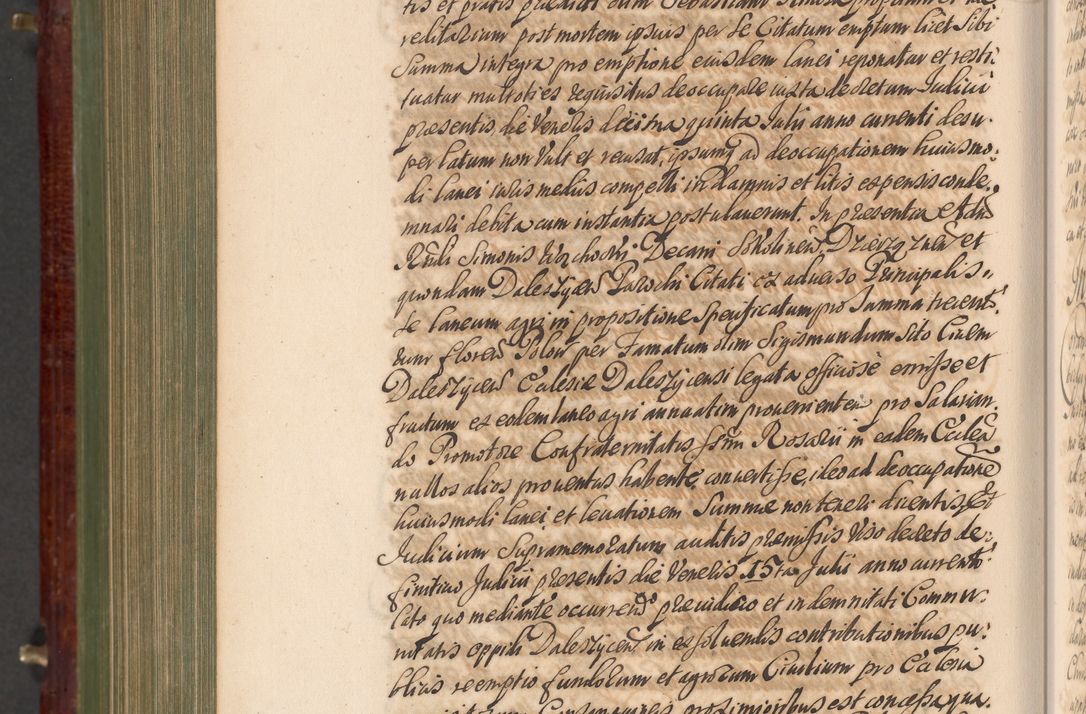 reditarium post mortem ipsius per se Citatum emptum licet Sibi
Summa integra pro emptione eiusdem lanei reponatur et resti:
tuatur multoties requisitus deoccupare iuxta decretum Judicii
præsentis die Veneris decima quinta Julii anno currenti desu:
per latum non vult et recusat, ipsumq ad deoccupationem huiusmo:
di lanei iuris mediis compelli in damnis et litis expensis conde:
mnari debita cum instantia postulauerunt. In præsentia
Rndi Simonis Decani et
quondam Daleszycen Parochi Citati ex aduerso Principalis
se laneum agri in propositione Specificatum pro Summa trecent:
rum floren Polon per Famatum olim Sigismundum Ciuem
Daleszycen Ecclesiæ Daleszycensi legata officiose emisse et
fructum ex eodem laneo agri annuatim prouenientem pro Salarian:
do Promotore Confraternitatis Ssmi Rosarii in eadem Ecclea
nullos alios prouentus habente, conuertisse, ideo ad deoccupatione
huiusmodi lanei et leuationem Summæ non teneri dicentis, Et
Judicium Supramemoratum auditis præmissis Viso decreto de:
finitiuo Judicii præsentis die Veneris 15ta Julii anno currenti
lato quo mediante occurren præiudicio et indemnitati Commu:
nitatis oppidi Daleszycen in exsoluendis contributionibus pu:
blicis reemptio fundorum et agrorum Ciuilium pro Ecclesia
proximioribus est concessa qua